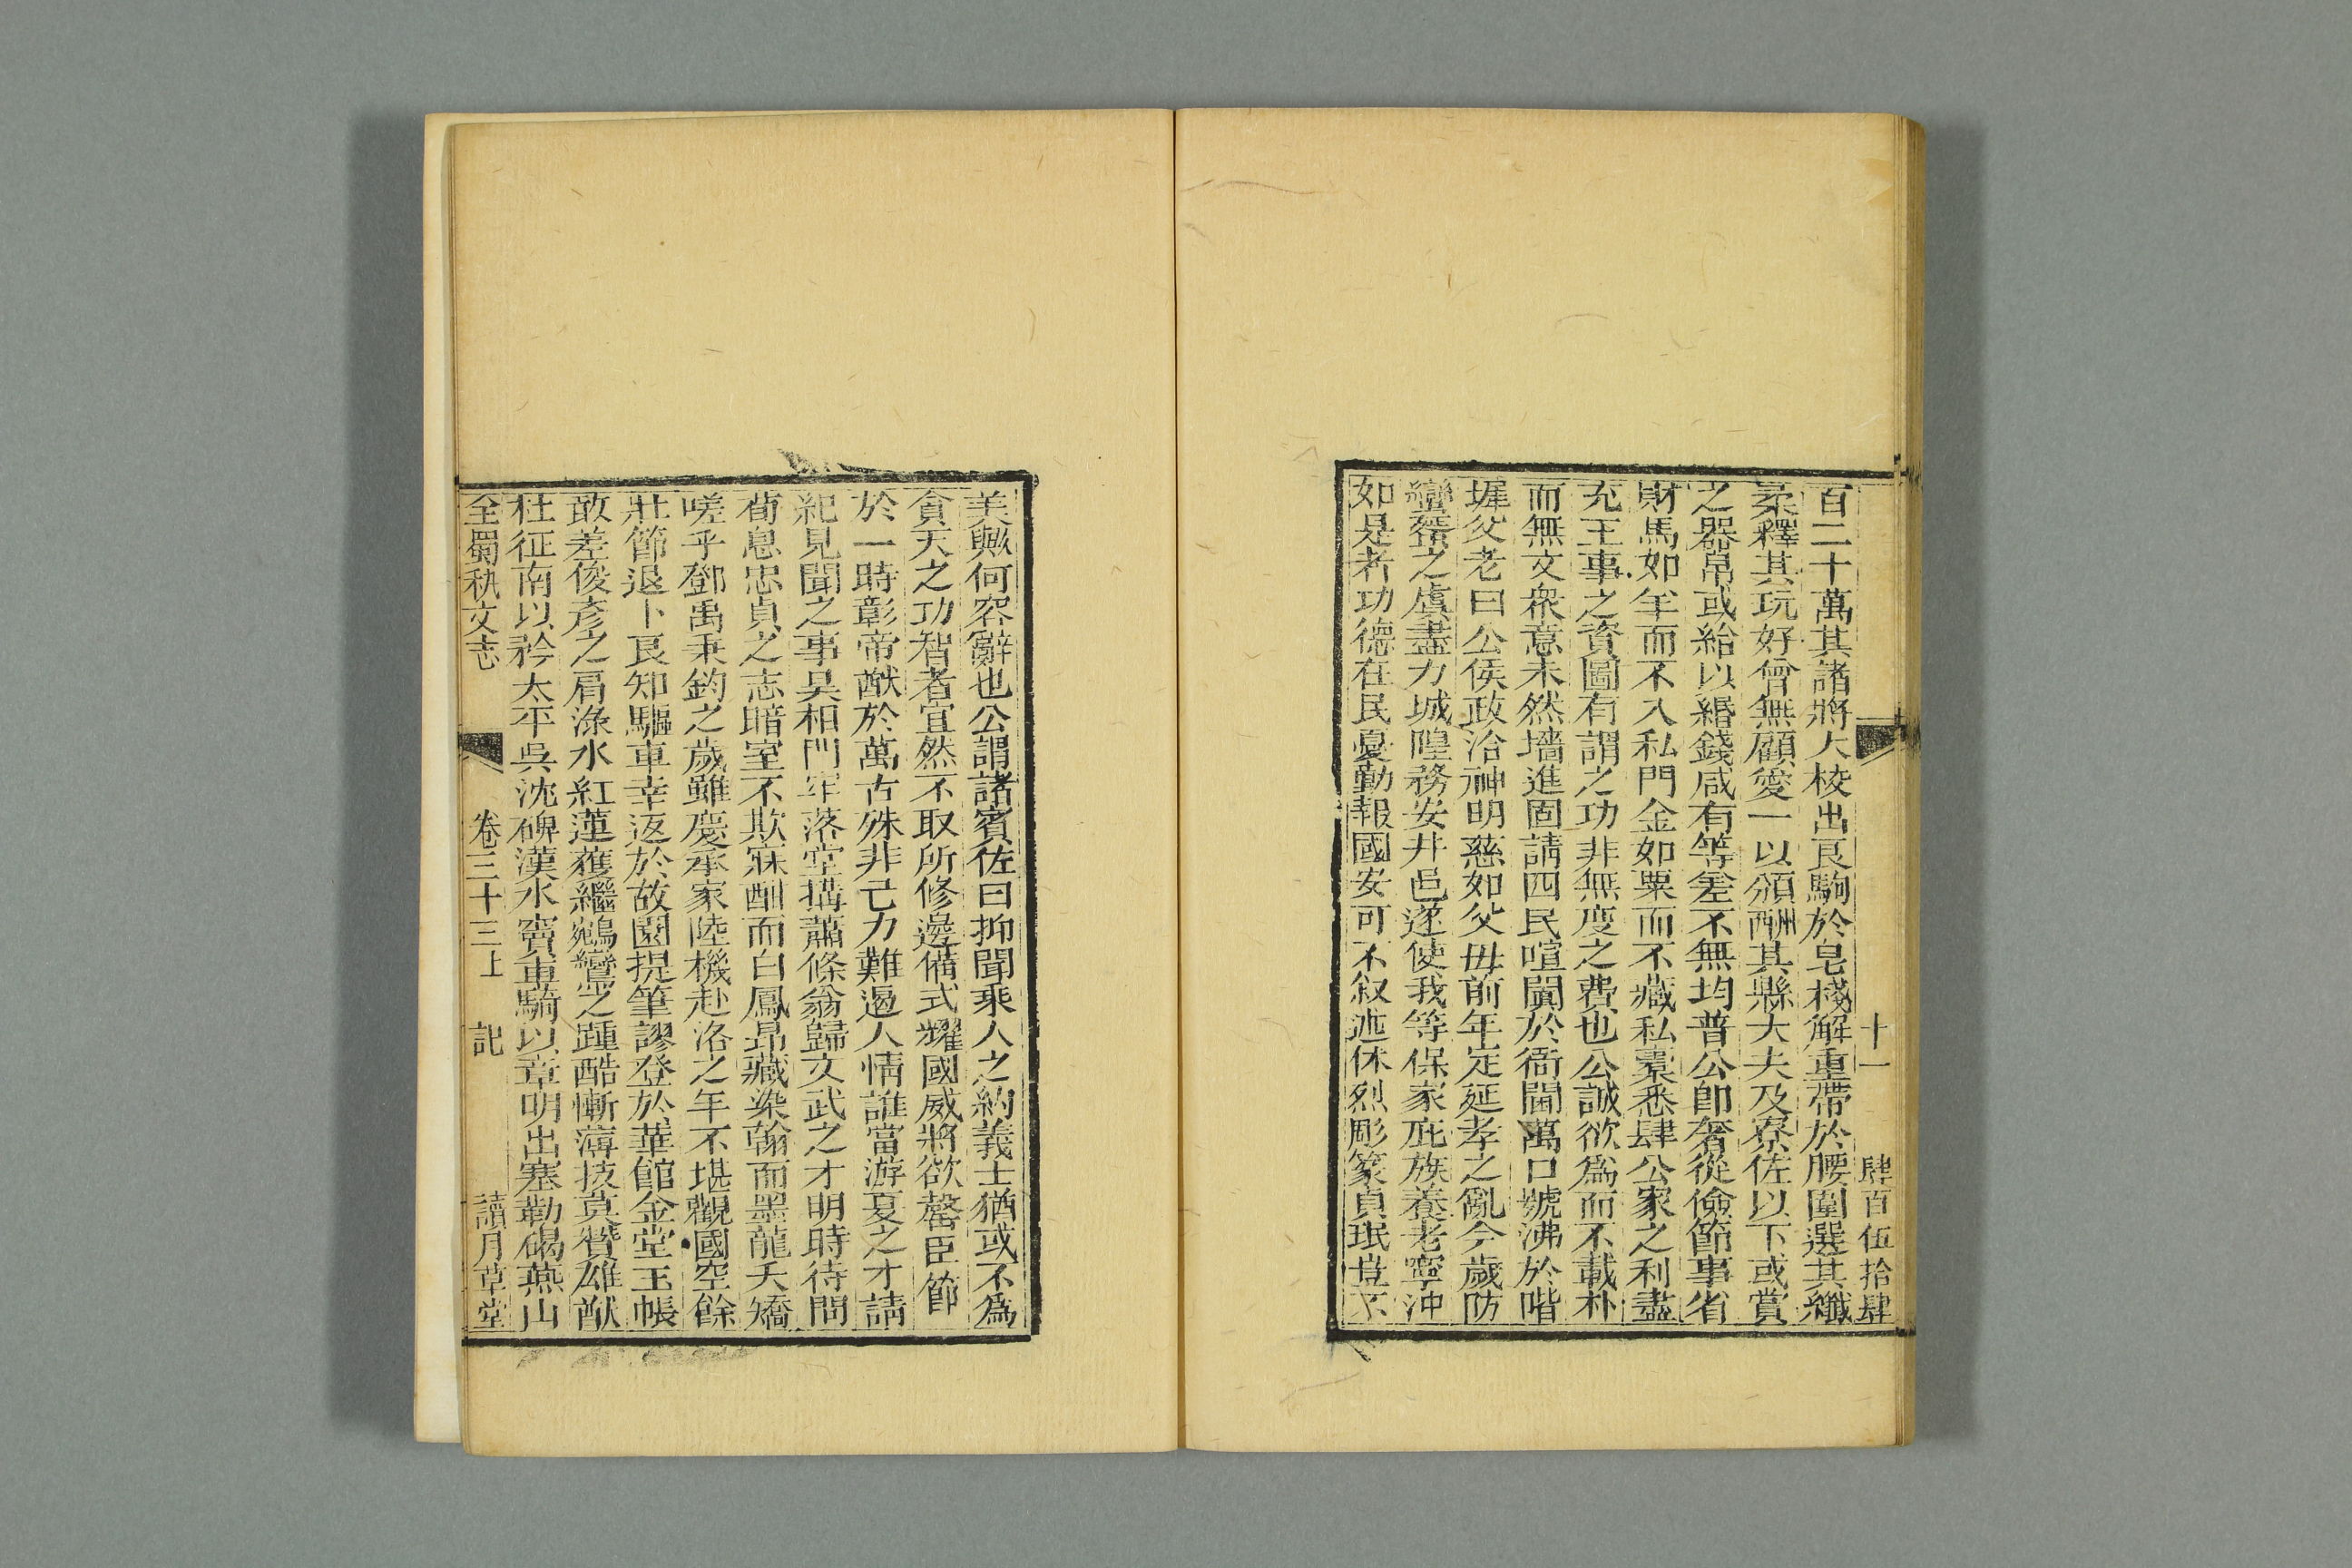 十一　肆百伍拾肆
百二十萬其諸將大校出良駒於皂棧解重帶於腰圍選其纖
柔釋其玩好曾無顧愛一以頒酬其縣大夫及寮佐以下或賞
之器帛或給以緡錢咸有等差不無均普公即奢從儉節事省
財馬如羊而不入私門金如粟而不藏私橐悉肆公家之利盡
充王事之資圖有謂之功非無度之費也公誠欲爲而不載朴
而無文衆意未然墻進固請四民喧闐於衙閫萬口號沸於喈
墀父老曰公侯政洽神明慈如父母前年定延孝之亂今歲防
蠻蜑之虞盡力城隍務安井邑遂使我等保家庇族養老寧沖
如是者功德在民憂勤報國安可不叙述休烈彫篆貞珉豈不
美歟何容辭也公謂諸賓佐曰抑聞乘人之約義士猶或不爲
貪天之功智者宜然不取所修邊備式耀國威將欲罄臣節
於一時彰帝猷於萬古殊非己力難遏人情誰當游夏之才請
紀見聞之事吳相門牢落空搆蕭條翁歸文武之才明時待問
荀息忠貞之志暗室不欺寐酣而白鳳昂藏染翰而墨龍夭矯
嗟乎鄧禹秉鈞之歲雖慶承家陸機赴洛之年不堪觀國空餘
壯節退卜良知驅車幸返於故園提筆謬登於華館金堂玉帳
敢差俊彥之肩淥水紅蓮獲繼鵷鸞之踵酷慚薄技莫贊雄猷
杜征南以矜太平吳沈碑漢水竇車騎以章明出塞勒碣燕山
全蜀秇文志　卷三十三上　記　讀月草堂